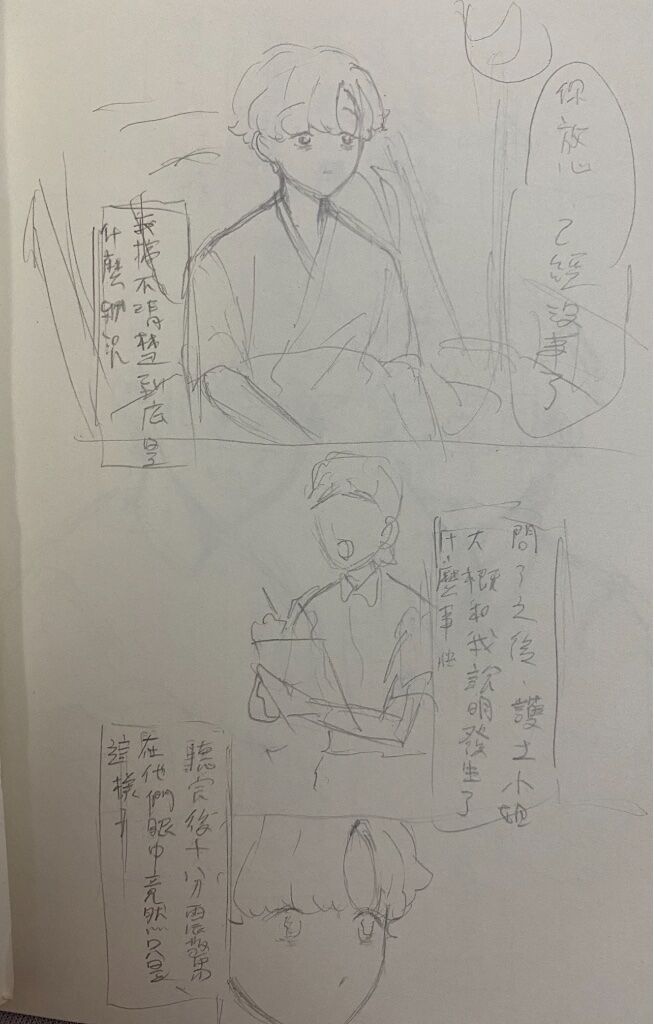 你放心
已經沒事了
我搞不清楚到底是
什麼狀況
問了之後、護士小姐
大概和我說明發生了
什麼事
聽完後十分震驚
在他們眼中竟然只是
這樣子